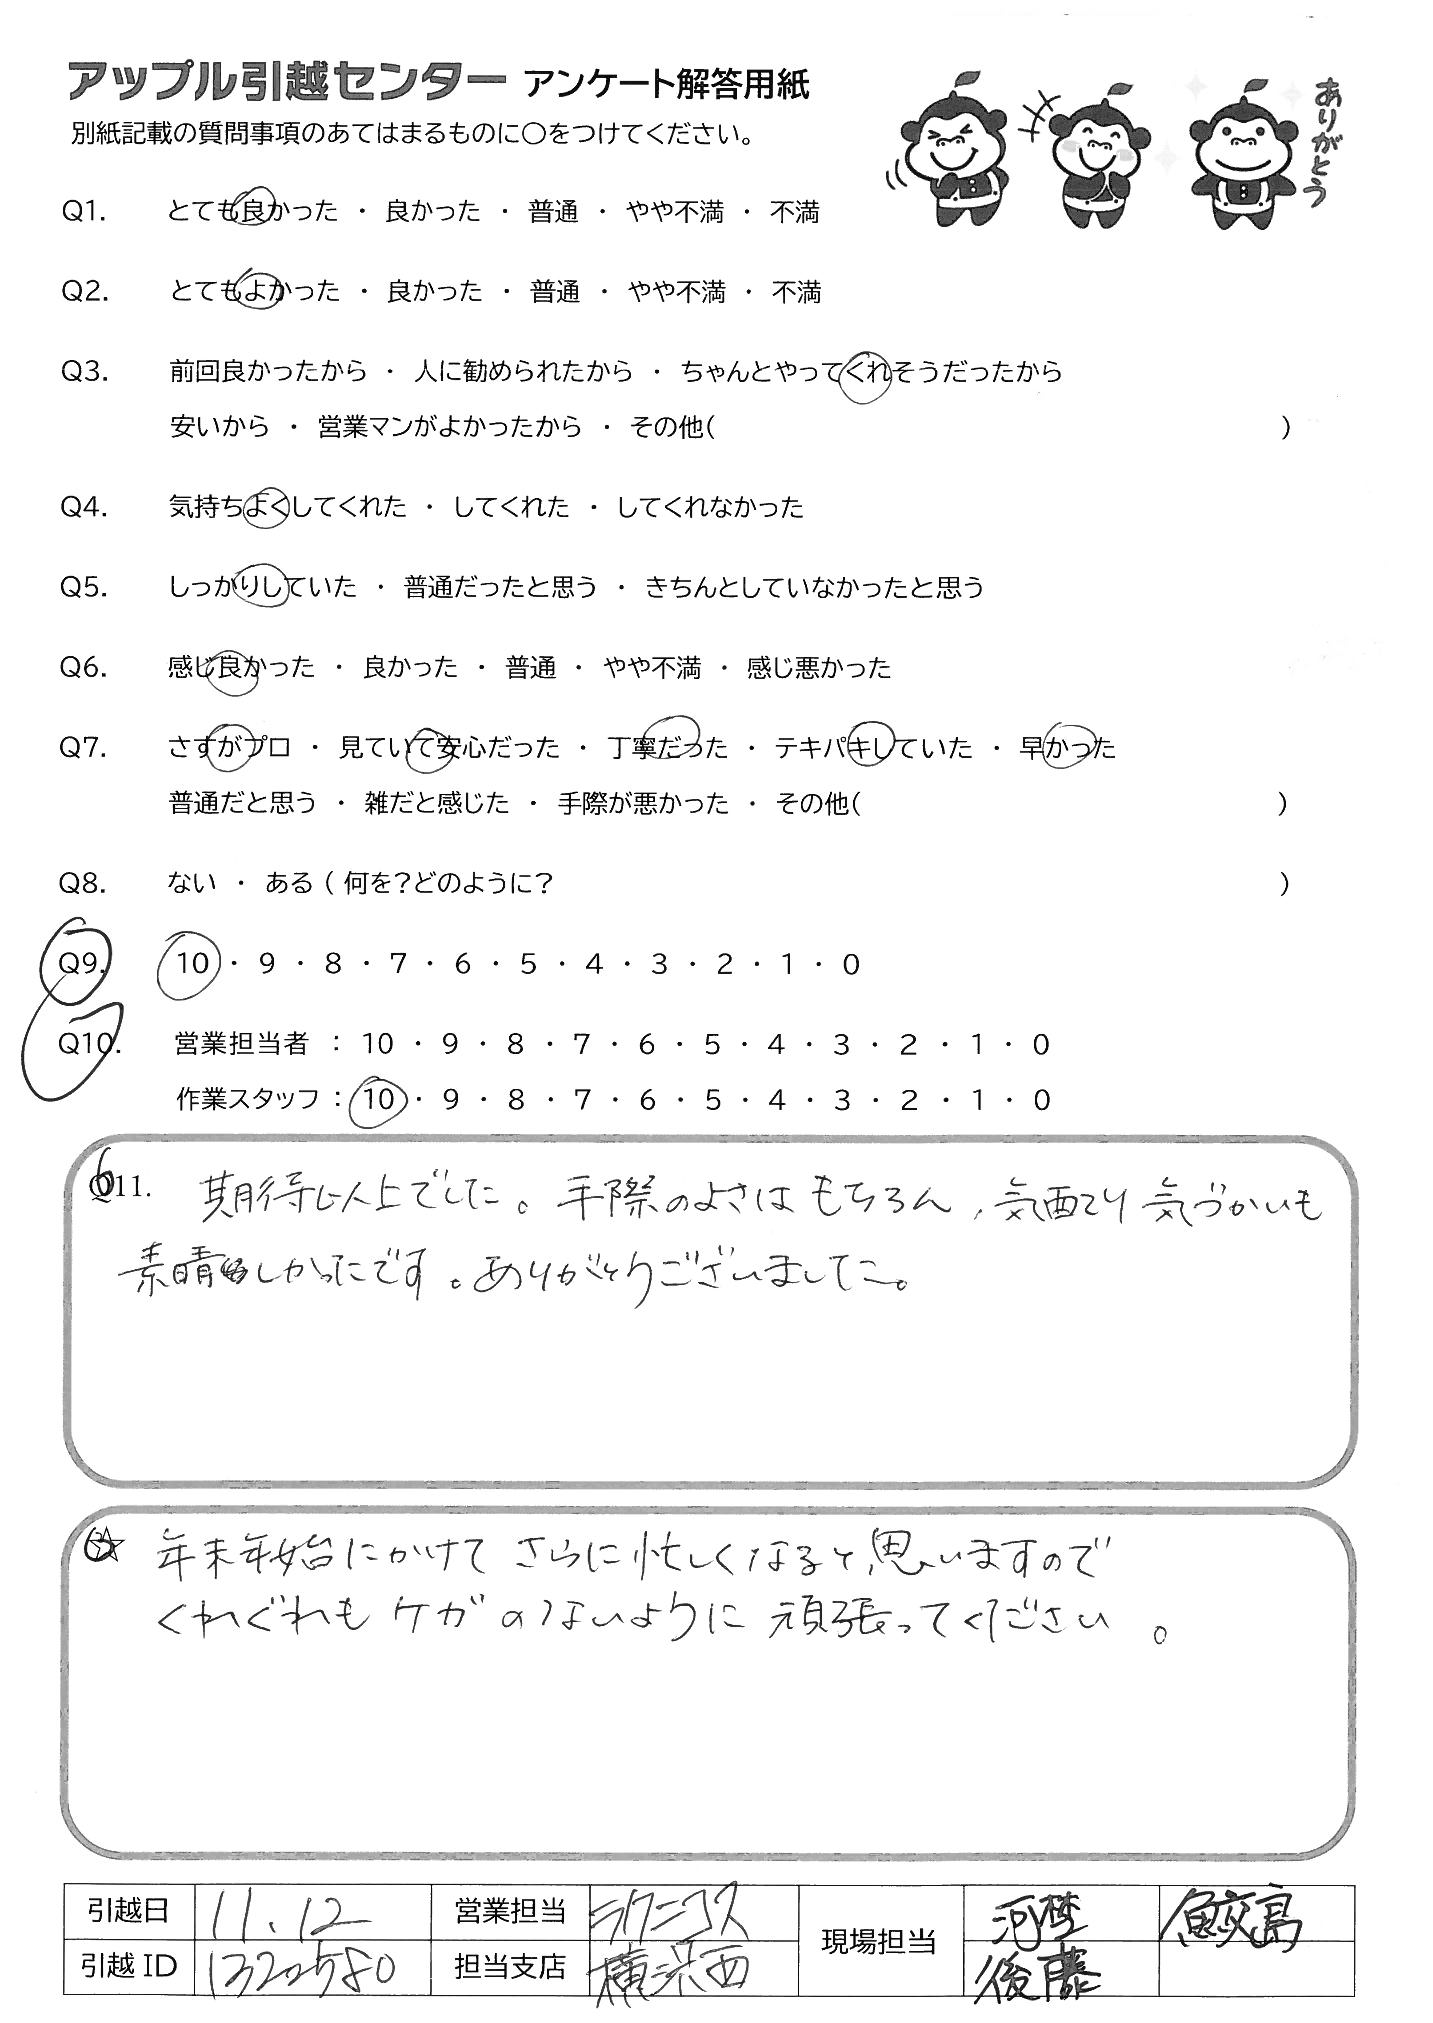 アップル引越センター アンケート解答用紙
別紙記載の質問事項のあてはまるものに〇をつけてください。
ありがとう
Q1. とても良かった ・ 良かった ・ 普通 ・ やや不満 ・ 不満
Q2. とてもよかった ・ 良かった ・ 普通 ・ やや不満 ・ 不満
Q3. 前回良かったから ・ 人に勧められたから ・ ちゃんとやってくれそうだったから
安いから ・ 営業マンがよかったから ・ その他( )
Q4. 気持ちよくしてくれた ・ してくれた ・ してくれなかった
Q5. しっかりしていた ・ 普通だったと思う ・ きちんとしていなかったと思う
Q6. 感じ良かった ・ 良かった ・ 普通 ・ やや不満 ・ 感じ悪かった
Q7. さすがプロ ・ 見ていて安心だった ・ 丁寧だった ・ テキパキしていた ・ 早かった
普通だと思う ・ 雑だと感じた ・ 手際が悪かった ・ その他( )
Q8. ない ・ ある ( 何を?どのように? )
Q9. 10 ・ 9 ・ 8 ・ 7 ・ 6 ・ 5 ・ 4 ・ 3 ・ 2 ・ 1 ・ 0
Q10. 営業担当者 : 10 ・ 9 ・ 8 ・ 7 ・ 6 ・ 5 ・ 4 ・ 3 ・ 2 ・ 1 ・ 0
作業スタッフ : 10 ・ 9 ・ 8 ・ 7 ・ 6 ・ 5 ・ 4 ・ 3 ・ 2 ・ 1 ・ 0
Q11. 期待以上でした。手際のよさはもちろん、気配り気づかいも
素晴しかったです。ありがとうございました。
☆ 年末年始にかけてさらに忙しくなると思いますので
くれぐれもケガのないように頑張ってください。
引越日 11.12 営業担当 ラクニコス 現場担当 鮫島
引越ID 1320580 担当支店 横浜西 後藤